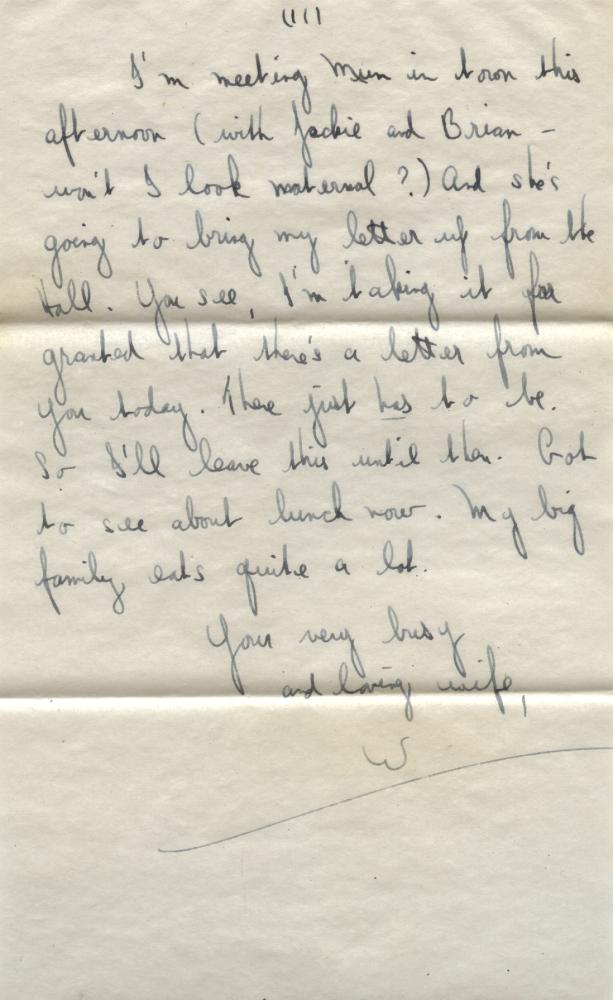 ((((
I'm meeting Mum in town this
afternoon (with Jackie and Brian -
won't I look maternal ?) And she's
going to bring my letter up from the
Hall. You see, I'm taking it for
granted that there's a letter from
you today. There just has to be.
So I'll leave this until then. Got
to see about lunch now. My big
family eats quite a lot.
Your very busy
and loving wife,
W